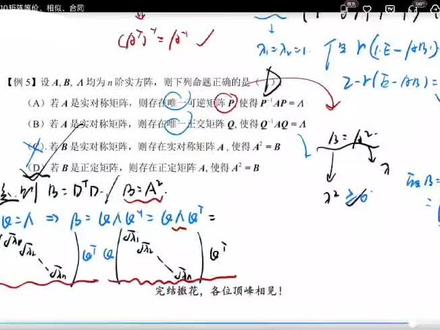 矩阵等价、相似、合同
(A⁻¹)⁻¹ = A⁻¹ ✓
λ₁=λ₂=1.
r(1·E-AB)
2-r(E-AB)=
【例 5】设 A, B, Λ 均为 n 阶实方阵，则下列命题正确的是（ D ）
（A）若 A 是实对称矩阵，则存在唯一可逆矩阵 P, 使得 P⁻¹AP = Λ
（B）若 A 是实对称矩阵，则存在唯一正交矩阵 Q, 使得 Q⁻¹AQ = Λ
（C）若 B 是实对称矩阵，则存在实对称矩阵 A, 使得 A² = B
（D）若 B 是正定矩阵，则存在正定矩阵 A, 使得 A² = B
B = A²
λ
λ² ≥0
则 B=DᵀD. B=A².
Q=Λ ⇒ B=QΛQ⁻¹=QΛQᵀ=
√λ₁ √λ₂ √λₙ Qᵀ Q √λ₁ √λ₂ √λₙ Qᵀ
完结撒花，各位顶峰相见！